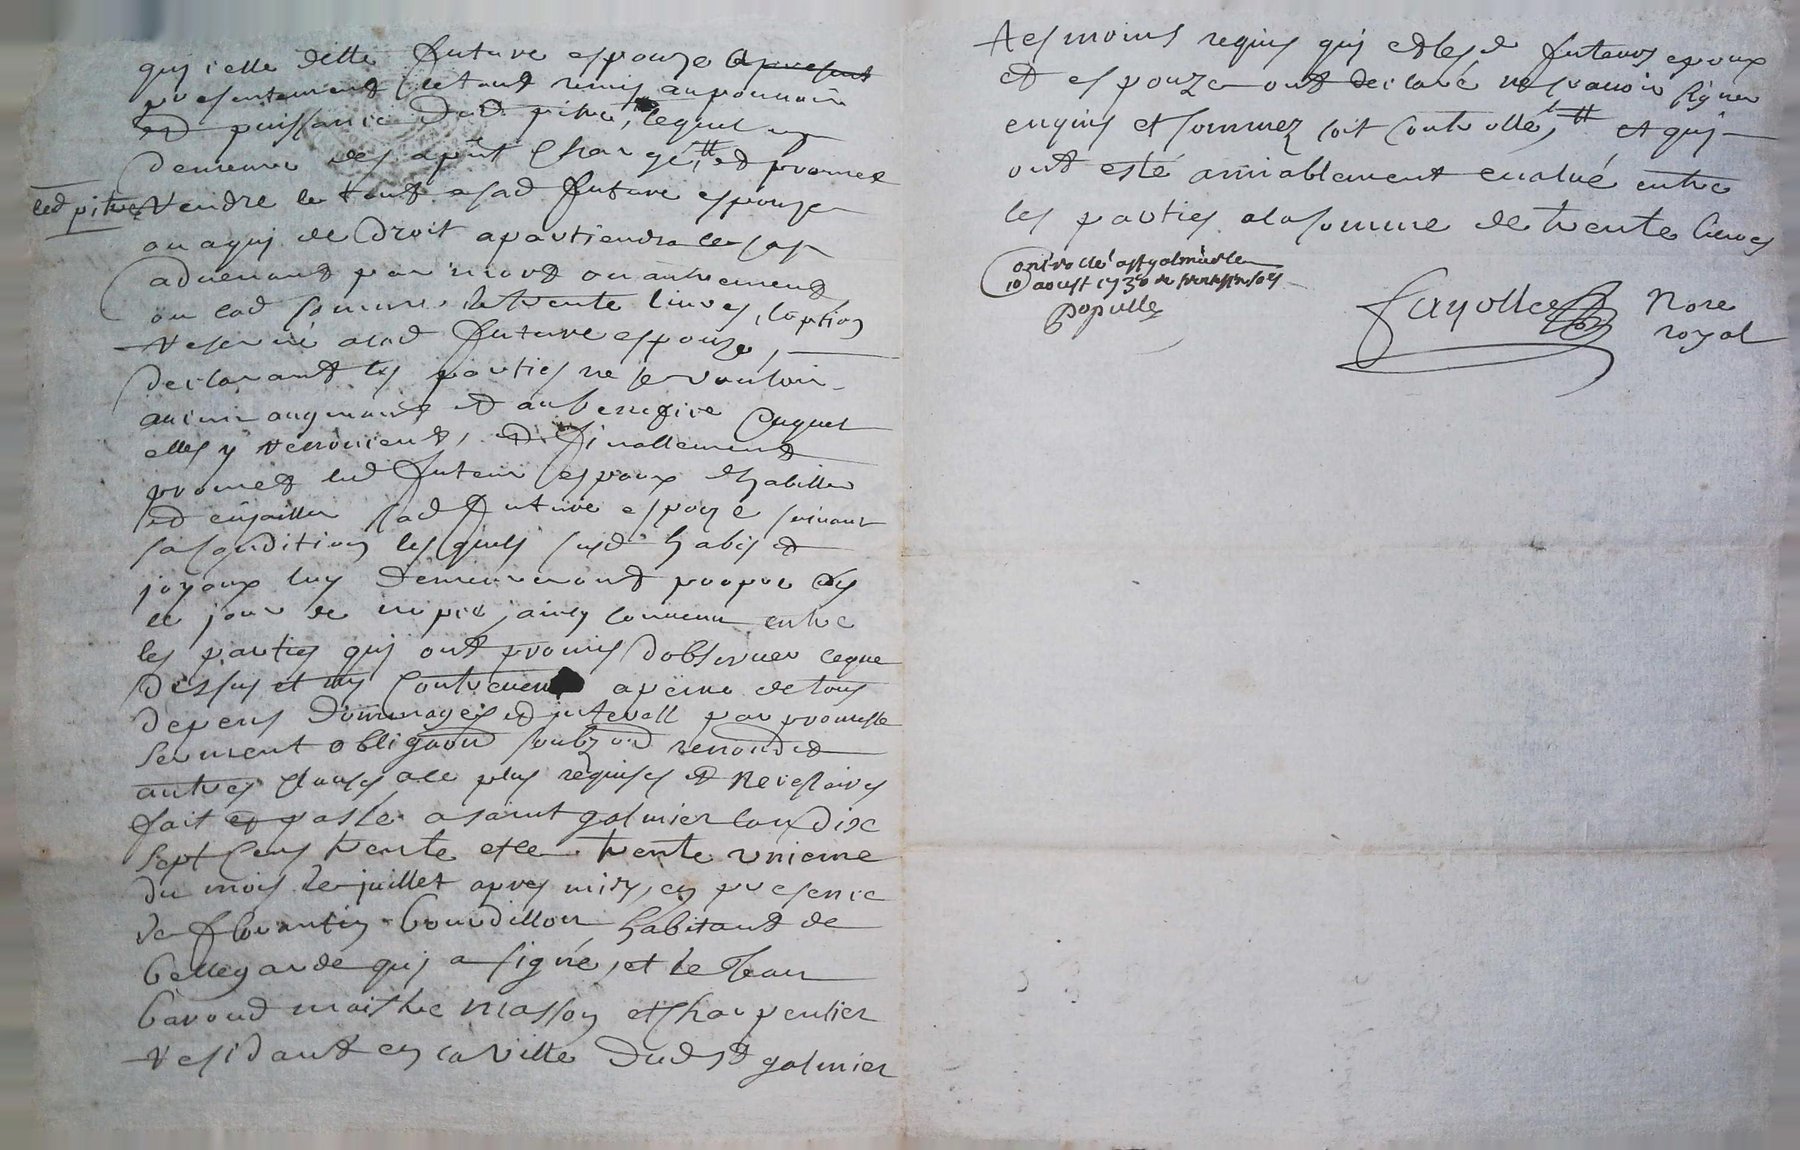 quj icelle ditte future espouze a present
presentement et tout remis au pouuoir
et puissance dud pitre, lequel en
demeure des apnt chargé, et promet
led pitre
rendre le tout a sad future espouze
ou a quj de droit apartiendra le cas
aduenant par mort ou autrement
ou lad somme de trente liures, loption
reserué a lad future espouze,
declarant les parties ne se vouloir
aucun augmant et au beneffice duquel
elles y renoncent, et finallement
promet led futeur espoux dhabiller
et enjoailler sad future espouze suiuant
sa condition lesquels susd habis et
joyaux luy demeureront propre des
le jour de nopce, ainsy conuenu entre
les parties quj ont promis dobseruer ceque
dessus et ny contreuenir a peine de tous
depens dommages et interest par promesse
serment obligaon soubzon renond et
autres clauses a ce plus requises et necessaires
fait et passé a saint galmier lan dixe
sept cens trente et le trente vnieme
du mois de juillet apres midy, en presence
de florantin bourdillon habitant de
bellegarde quj a signé, et de Jean
barond maistre masson et charpentier
residant en la ville dud st galmier
tesmoins requis quj et lesd futeurs epoux
et espouze ont declaré ne scauoir signer
enquis et sommez soit controllé, et quj
ont esté amiablement eualué entre
les parties a la somme de trente liures
Controllé a st galmier le
10 aoust 1730
populle
fayolle Nore
royal